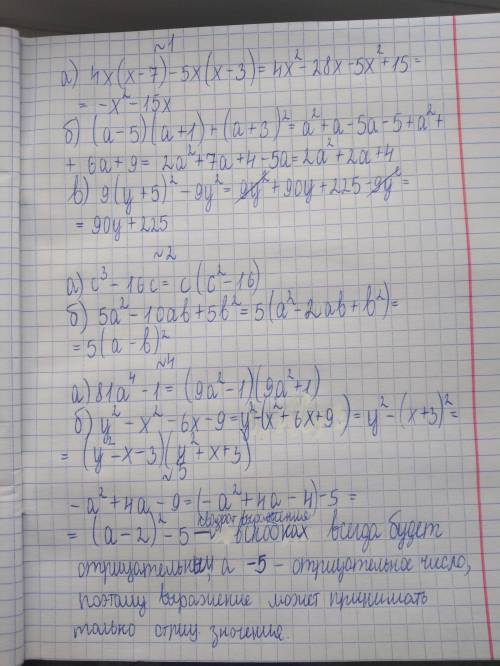 ~1
а) 4x(x-7)-5x(x-3)=4x²-28x-5x²+15=
= -x²-15x
б) (a-5)(a+1)+(a+3)²=a²+a-5a-5+a²+
+ 6a+9= 2a²+7a+4-5a=2a²+2a+4
в) 9(y+5)²-9y²=9y²+90y+225-9y²=
= 90y+225
~2
а) c³-16c=c(c²-16)
б) 5a²-10ab+5b²=5(a²-2ab+b²)=
=5(a-b)²
~4
а) 81a⁴-1=(9a²-1)(9a²+1)
б) y²-x²-6x-9=y²-(x²+6x+9)=y²-(x+3)²=
= (y²-x-3)(y²+x+3)
~5
-a²+4a-9=(-a²+4a-4)-5=
= (a-2)²-5 — квадрат выражения в скобках всегда будет
отрицательным, а -5 - отрицательное число,
поэтому выражение может принимать
только отриц. значение.